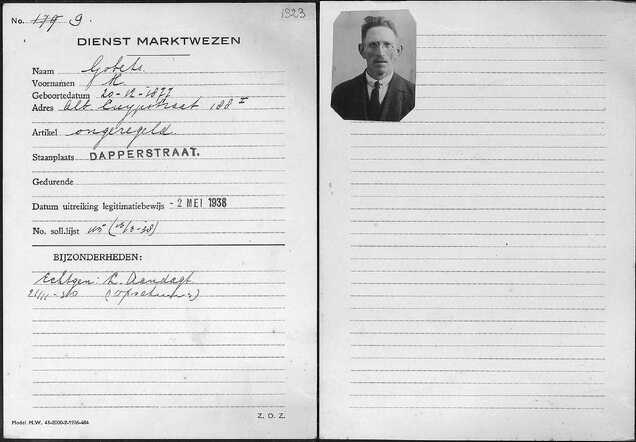 No. 179 9. 1323
DIENST MARKTWEZEN
Naam Gobets.
Voornamen M
Geboortedatum 20-12-1877
Adres Alb. Cuypstraat 188 I
Artikel ongeregeld.
Staanplaats DAPPERSTRAAT.
Gedurende
Datum uitreiking legitimatiebewijs - 2 MEI 1938
No. soll.lijst
BIJZONDERHEDEN:
Echtgen: Aandagt
Z. O. Z.
Model M.W. 41-2000-2-1936-484